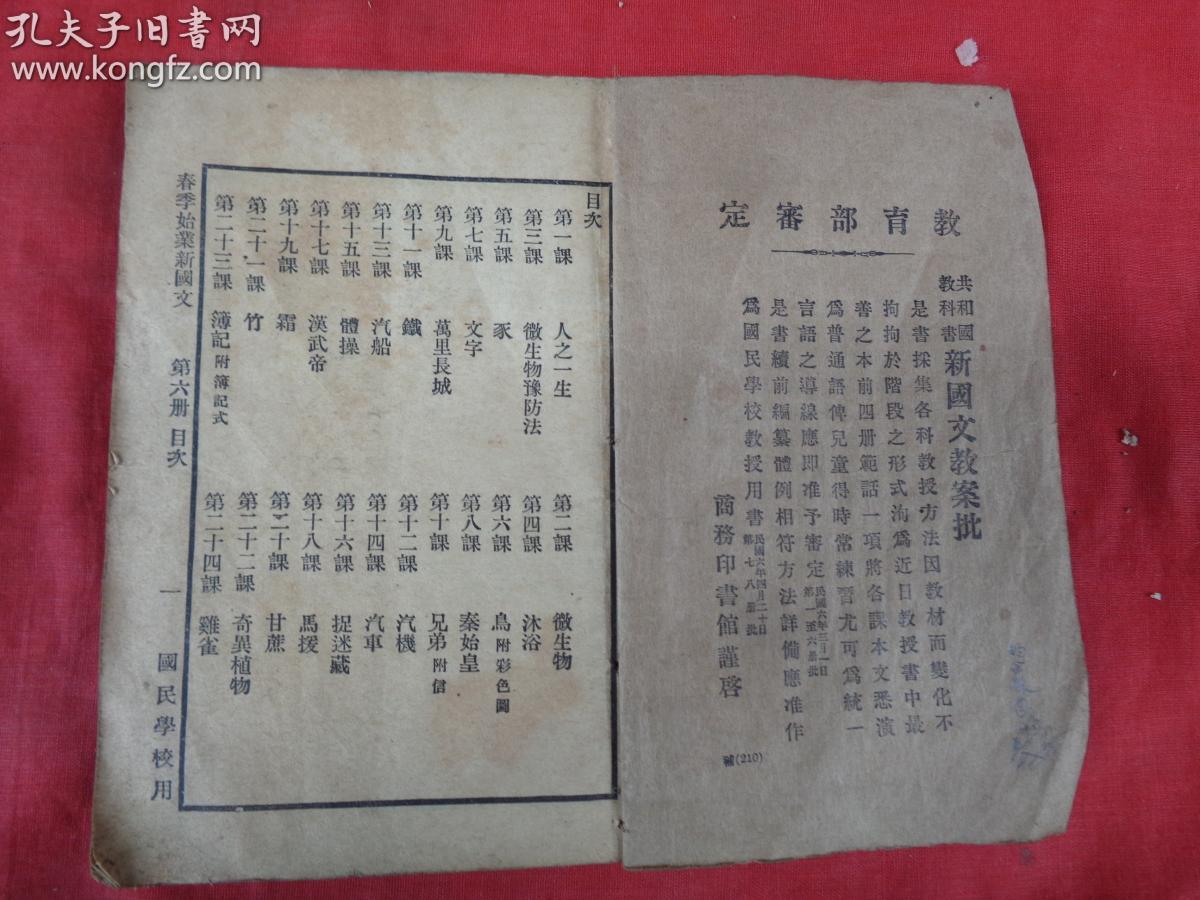 孔夫子旧书网
www.kongfz.com
教育部審定
共和國
教科書
新國文教案批
是書採集各科教授方法因教材而變化不
拘拘於階段之形式洵爲近日教授書中最
善之本前四册範話一項將各課本文悉演
爲普通語俾兒童得時常練習尤可爲統一
言語之導線應即准予審定
民國六年三月一日
第一至六册批
是書續前編纂體例相符方法詳備應准作
爲國民學校教授用書
民國六年四月二十日
第七八册批
商務印書館謹啓
補(210)
目次
第一課 人之一生
第二課 微生物
第三課 微生物豫防法
第四課 沐浴
第五課 豕
第六課 鳥 附彩色圖
第七課 文字
第八課 秦始皇
第九課 萬里長城
第十課 兄弟 附信
第十一課 鐵
第十二課 汽機
第十三課 汽船
第十四課 汽車
第十五課 體操
第十六課 捉迷藏
第十七課 漢武帝
第十八課 馬援
第十九課 霜
第二十課 甘蔗
第二十一課 竹
第二十二課 奇異植物
第二十三課 簿記 附簿記式
第二十四課 雞雀
春季始業新國文 第六册 目次 一 國民學校用